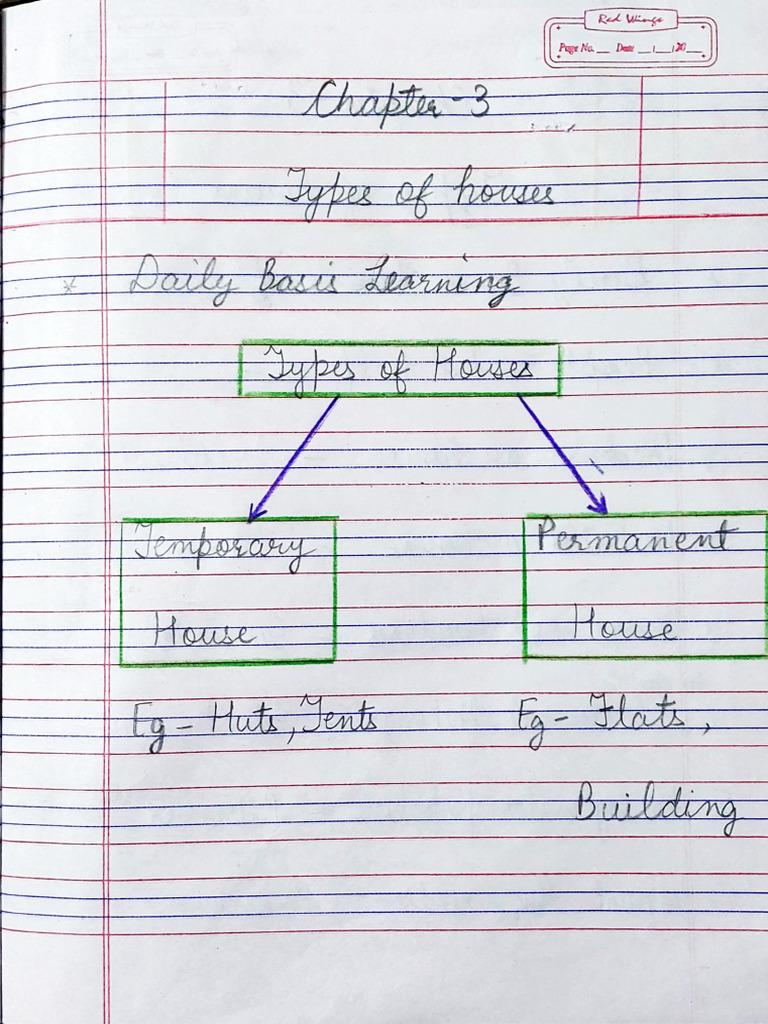 Red Wings
Page No.__ Date __/__/20__
Chapter-3
Types of houses
* Daily Basis Learning
Types of Houses
Temporary
House
Permanent
House
Eg - Huts, Tents
Eg - Flats,
Building